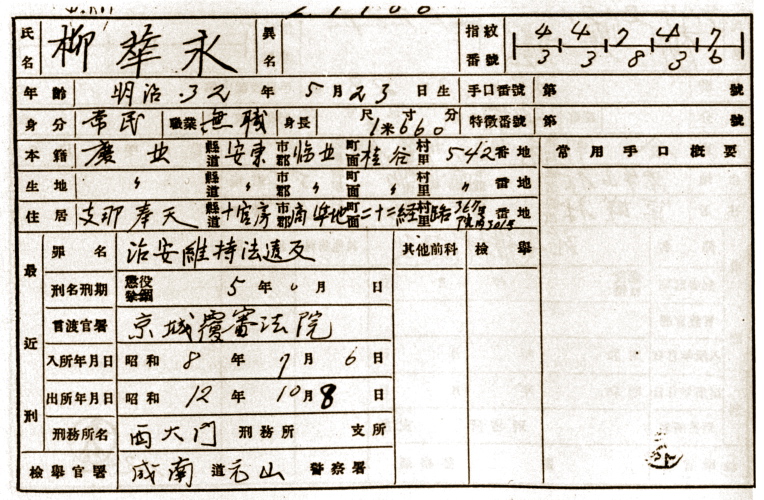 氏名 柳華永 異名 指紋番號 4/3 4/3 7/8 4/3 7/6
年齡 明治 32 年 5月23日生 手口番號 第 號
身分 常民 職業 無職 身長 尺 寸 分 1米660 特徵番號 第 號
本籍 慶北 縣道 安東 市郡 临北 町面 桂谷 村里 542番地 常用手口概要
生地 〃 縣道 〃 市郡 〃 町面 〃 村里 〃 番地
住居 支那奉天 縣道 十官房 市郡 商埠地 町面 二十二經路 村里 番地
最近刑
罪名 治安維持法違反 其他前科 檢擧
刑名刑期 懲役 禁錮 5年0月 日
言渡官署 京城覆審法院
入所年月日 昭和 8 年 7月 6日
出所年月日 昭和 12 年 10月 8 日
刑務所名 西大门 刑務所 支所
檢擧官署 咸南 道 元山 警察署